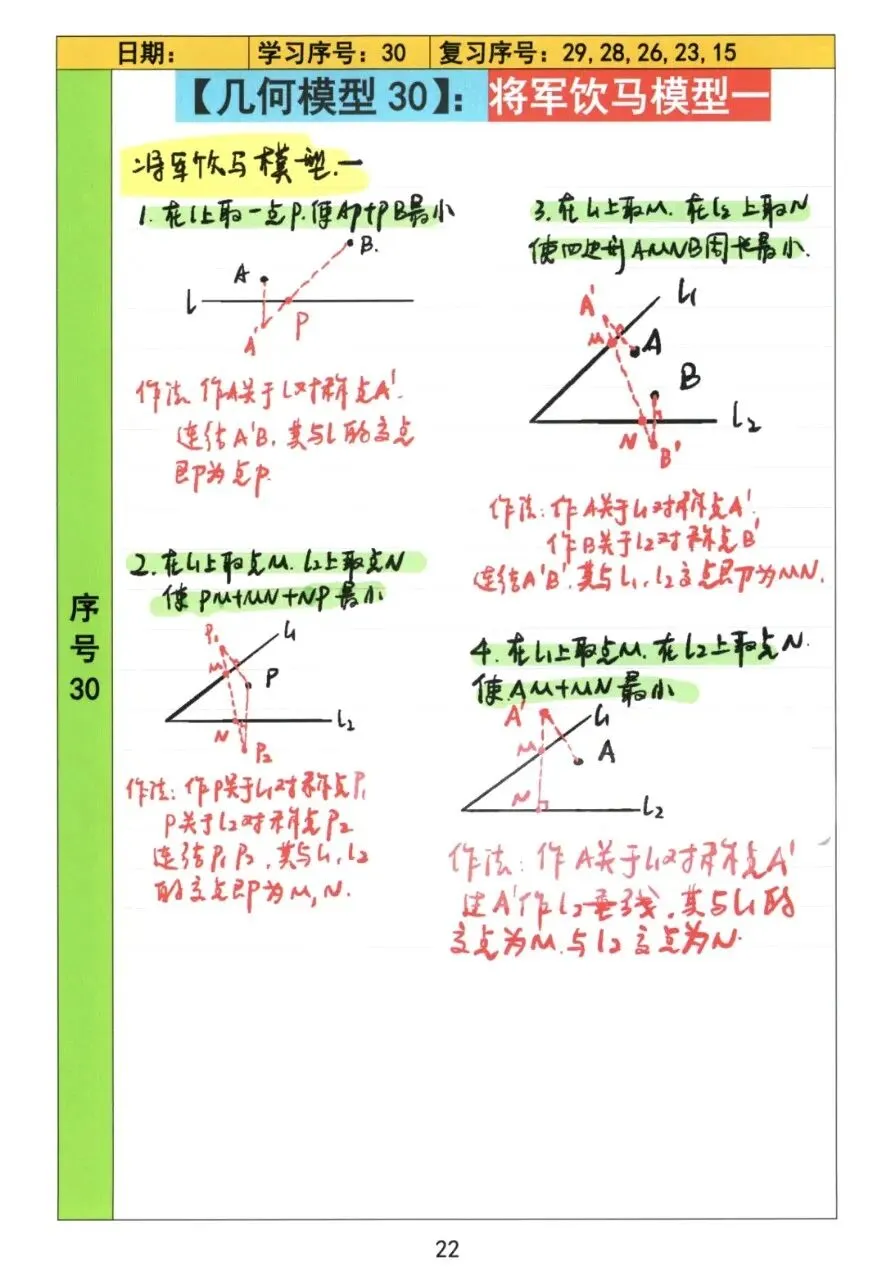 日期： 学习序号：30 复习序号：29,28,26,23,15
【几何模型 30】：将军饮马模型一
序号30
将军饮马模型.一
1.在l上取一点P.使AP+PB最小
A
B.
l
P
A'
作法.作A关于l对称点A'.
连结A'B.其与l的交点
即为点P.
2.在l₁上取点M.l₂上取点N
使PM+MN+NP最小
P₁
l₁
M
P
N
l₂
P₂
作法：作P关于l₁对称点P₁
P关于l₂对称点P₂
连结P₁P₂，其与l₁,l₂
的交点即为M,N.
3.在l₁上取M.在l₂上取N
使四边形AMNB周长最小.
A'
l₁
M
A
B
N
l₂
B'
作法：作A关于l₁对称点A'.
作B关于l₂对称点B'
连结A'B'.其与l₁,l₂交点即为MN.
4.在l₁上取点M.在l₂上取点N.
使AM+MN最小
A'
l₁
M
A
N
l₂
作法：作A关于l₁对称点A'
过A'作l₂垂线，其与l₁的
交点为M.与l₂交点为N.
22